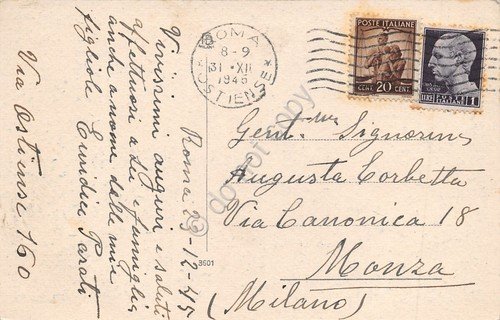 ROMA
8-9
31·XII
1945
OSTIENSE
POSTE ITALIANE
CENT. 20 CENT.
LIRE 1
POSTE
ITALIANE
Roma 29-12-45
Vivissimi auguri e saluti
affettuosi a Lei e famiglia
anche a nome delle mie
figliole
Via Ostiense 160
Gent.ma Signorina
Augusta Corbetta
Via Canonica 18
Monza
(Milano)
3601
do not copy